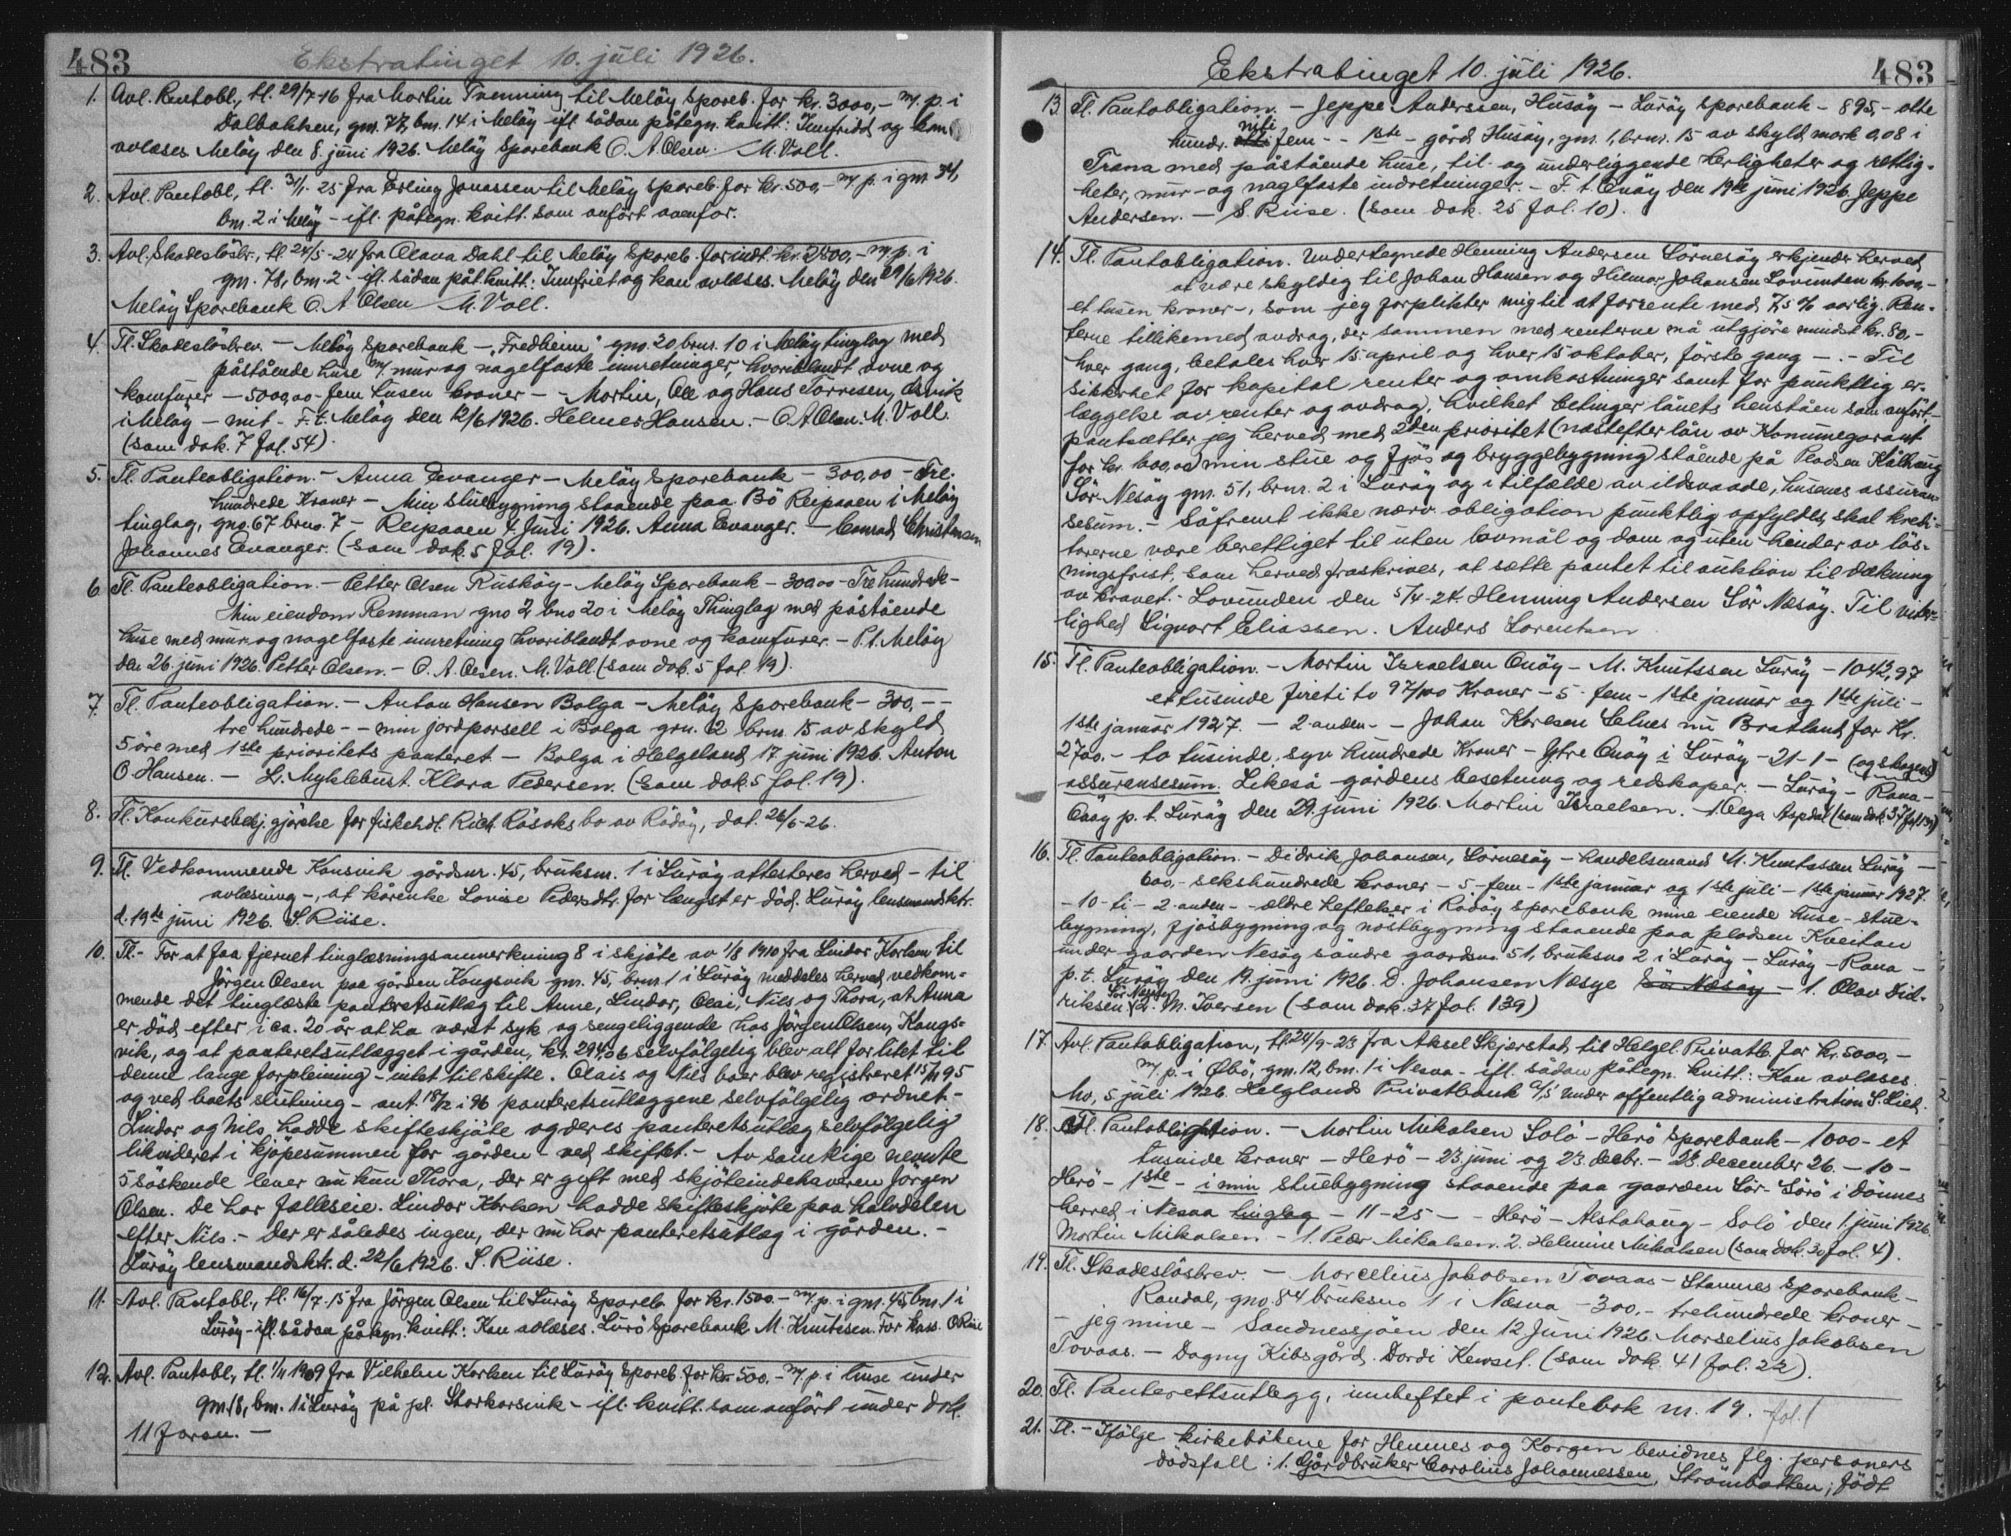 483
Ekstratinget 10. juli 1926.
1. Avl. Pantobl., tl. 29/7-16 fra Martin Tvenning til Meløy Spareb. for kr. 3000,- m. p. i
Dalbakken, gnr. 77, bnr. 14 i Meløy ifl. sådan påtegn. kvitt: Innfridd og kan
avlæses Meløy den 8. juni 1926. Meløy Sparebank O. A. Olsen. M. Voll.
2. Avl. Pantobl, tl. 31/1-25 fra Erling Jonassen til Meløy Spareb. for kr. 500,- m. p. i gnr. 34,
bnr. 2 i Meløy - ifl. påtegn. kvitt. som anført ovenfor.
3. Avl. Skadesløsbr., tl 24/5-24 fra Olava Dahl til Meløy Spareb. for indt. kr. 2500,- m. p. i
gnr. 78, bnr. 2 - ifl. sådan påt. kvitt: Innfriet og kan avlæses. Meløy den 29/6 1926.
Meløy Sparebank O. A Olsen M. Voll.
4. Tl. Skadesløsbrev. - Meløy Sparebank - "Fredheim" gno. 20 brnr. 10 i Meløy tinglag med
påstående huse m/ mur og nagelfaste innretninger, hvoriblandt ovne og
komfurer - 5000,00 - fem tusen kroner - - Martin, Ole og Hans Torrisen,
i Meløy - mit - F. t. Meløy den 12/6 1926. Helmer Hansen. - O. A. Olsen. M. Voll.
(som dok. 7 fol. 54).
5. Tl. Panteobligation. - Anna Evanger - Meløy Sparebank - 300,00 - Tre-
hundrede Kroner - Min stuebygning staaende paa Bø Reipaaen i Meløy
tinglag, gno. 67 brno. 7 - Reipaaen 4 Juni 1926. Anna Evanger. - Conrad Christman
Johannes Evanger. (som dok. 5 fol. 19).
6. Tl. Panteobligation. - Petter Olsen Ruskøy - Meløy Sparebank - 300,00 - Tre hundrede -
Min eiendom Remman gno 2 bno 20 i Meløy Thinglag med påstående
huse med mur og nagelfaste innretning hvoriblandt ovne og komfurer - P. t. Meløy
den 26. juni 1926. Petter Olsen. - O. A. Olsen. M. Voll (som dok. 5 fol 19).
7. Tl. Panteobligation. - Anton Hansen Bolga - Meløy Sparebank - 300,- -
tre hundrede - - min jordparsell i Bolga gnr. 2 brnr. 15 av skyld
5 øre med 1ste prioritets panteret - Bolga i Helgeland 17 juni 1926. Anton
O. Hansen. - Myklebust. Klara Pedersen. (som dok 5 fol. 19).
8. Tl. Konkursbekj. gjørelse for fiskehdl. Rich. Råsoks bo av Rødøy, dat. 26/6-26.
9. Tl. Vedkommende Konsvik gårdsnr. 45, bruksnr. 1 i Lurøy attesteres herved - til
avlæsning -, at kårenke Lovise Pedersdtr. for længst er død. Lurøy lensmandsktr.
d. 19de juni 1926. S. Riise.
10. Tl. - For at faa fjernet tinglæsningsanmerkning 8 i skjøte av 1/8 1910 fra Lindor Karlsen til
Jørgen Olsen paa gården Kongsvik gnr. 45, brnr. 1 i Lurøy meddeles herved vedkom-
mende det tinglæste panteretsutlæg til Anne, Lindor, Olai, Nils og Thora, at Anna
er død efter i ca. 20 år at ha været syk og sengeliggende hos Jørgen Olsen, Kongs-
vik, og at panteretsutlægget i gården, kr. 294,06 selvfølgelig blev alt for litet til
denne lange forpleining - intet til skifte. Olais og Nils boer blev registreret 15/11 95
og ved boets slutning - ant. 18/2 i 96 panteretsutlæggene selvfølgelig ordnet -
Lindor og Nils hadde skifteskjøte og deres panteretsutlæg selvfølgelig
likvideret i kjøpesummen for gården - ved skiftet. - Av samtlige nevnte
5 søskende lever nu kun Thora, der er gift med skjøteindehaveren Jørgen
Olsen. De har fælleseie. Lindor Karlsen hadde skifteskjøte paa halvdelen
efter Nils. - Der er således ingen, der nu har panteretsutlæg i gården. -
Lurøy lensmandsktr. d. 22/6 1926. S. Riise.
11. Avl. Pantobl., tl. 16/7-15 fra Jørgen Olsen til Lurøy Spareb. for kr. 1500.- m. p. i gnr. 45, bnr. 1 i
Lurøy - ifl. sådan påtegn. kvitt: Kan avlæses. Lurø Sparebank M. Knutssen. For kass. O Riise
12. Avl. Pantobl, tl. 1/11 1909 fra Vilhelm Karlsen til Lurøy Spareb. for kr. 500.- m. p. i huse under
gnr. 18, bnr. 1 i Lurøy på pl. Storkorsvik - ifl. kvitt. som anført under dok.
11 foran. -
483
Ekstratinget 10. juli 1926.
13. Tl. Pantobligation. - Jeppe Anderssen, Husøy - Lurøy Sparebank - 895,- otte
hundr. niti fem - - 1ste - gård Husøy, gnr. 1, brnr. 15 av skyld mark 0,08 i
Træna med påstående huse, til- og underliggende herligheter og rettig-
heter, mur- og naglfaste indretninger. - F. t. Onøy den 19de juni 1926. Jeppe
Andersen. - S. Riise. (som dok. 25 fol. 10).
14. Tl. Pantobligation. Undertegnede Henning Andersen Sörnesöy erkjender herved
at være skyldig til Johan Hansen og Hilmar Johansen Lovunden kr. 1000,-
et tusen kroner -, som jeg forplikter mig til at forrente med 7,5 % aarlig. Ren-
terne tillikemed avdrag, der sammen med renterne må utgjøre mindst kr. 80,-
hver gang, betales hver 15 april og hver 15 oktober, første gang - . - Til
sikkerhet for kapital renter og omkostninger samt for punktlig er-
læggelse av renter og avdrag, hvilket betinger lånets henståen som anført -
pantsætter jeg herved med 2den prioritet (næstefter lån av Komunegarant
for kr. 1000,00) min stue og fjøs og bryggebygning stående på Pladsen Kålhaug
Sør-Nesøy gnr. 51, brnr. 2 i Lurøy og i tilfælde av ildsvaade, husenes assuran-
sesum. - Såfremt ikke nærv. obligation punktlig opfyldes, skal kredi-
torerne være berettiget til uten lovmål og dom og uten hender av løs-
ningsfrist, som herved fraskrives, at sætte pantet til auktion til dækning
av kravet. - Lovunden den 5/4-24. Henning Andersen Sør Næsøy. Til vitter-
lighed Sigvart Eliassen. Anders Lorentsen
15. Tl. Panteobligation. - Martin Israelsen Onøy - M. Knutssen Lurøy - 1042,97
et tusinde firetito 97/100 Kroner - 5 - fem - 1ste januar og 1ste juli -
1ste januar 1927. - 2 anden - - Johan Karlsen Selnes nu Bratland for Kr.
2700.- to tusinde, syv hundrede Kroner - Ytre Onøy i Lurøy - 21-1 - (og skogens)
assuransesum. Likeså gårdens besetning og redskaper. - Lurøy - Rana -
Onøy p. t. Lurøy den 29. juni 1926. Martin Israelsen. - 1. Olga Aspdal (som dok. 37 fol 139)
16. Tl. Panteobligation. - Didrik Johansen, Sørnesøy - handelsmand M. Knutssen Lurøy -
600,- sekshundrede kroner - 5 - fem - 1ste januar og 1ste juli - 1ste januar 1927.
- 10 - ti - 2 - anden - - ældre heftelser i Rødøy sparebank mine eiende huse - stue-
bygning, fjøsbygning og nøstbygning staaende paa pladsen Kveitan
under gaarden Nesøy søndre gaardsno 51, bruksno 2 i Lurøy - Lurøy - Rana -
p. t. Lurøy den 19. juni 1926. D. Johansen Næsye Sør Næsøy - 1. Olav Did-
riksen Sør Nesøy 2. M. Iversen (som dok. 37 fol. 139)
17. Avl. Pantobligation, tl 24/9-23 fra Aksel Skjerstad til Helgel. Privatb. for kr. 5000,-
m. p. i Øbø, gnr. 12, bnr. 1 i Nesna - ifl. sådan påtegn. kvitt.: Kan avlæses.
Mo, 5 juli 1926. Helglands Privatbank A/S under offentlig administration S. Lied.
18. Tl. Pantobligation. - Martin Mikalsen Solø - Herø Sparebank - 1000 - et
tusinde kroner - Herø - 23 juni og 23. decbr. - 23. december 26. - 10 -
Herø - 1ste - i min stuebygning staaende paa gaarden Sør-Sørø i Dønnes
herred i Nesna tinglag - 11 - 25 - - Herø - Alstahaug - Solø den 1. juni 1926.
Martin Mikalsen - 1. Peder Mikalsen. 2. Helmine Mikalsen (som dok. 30 fol. 4).
19. Tl. Skadesløsbrev. - Marcelius Jakobsen Tovaas - Stamnes Sparebank -
Randal, gno. 84 bruksno 1 i Næsna - 300,- trehundrede kroner -
- jeg mine - Sandnessjøen den 12 Juni 1926. Marselius Jakobsen
Tovaas. - Dagny Kibsgård. Dordi (som dok. 41 fol. 22).
20. Tl. Panterettsutlegg, innheftet i pantebok nr. 19. fol. 1
21. Tl. - Ifølge kirkebøkene for Hemnes og Korgen bevidnes flg. personers
dødsfall: 1. Gårdbruker Carolius Johannessen, Strømbotten, født